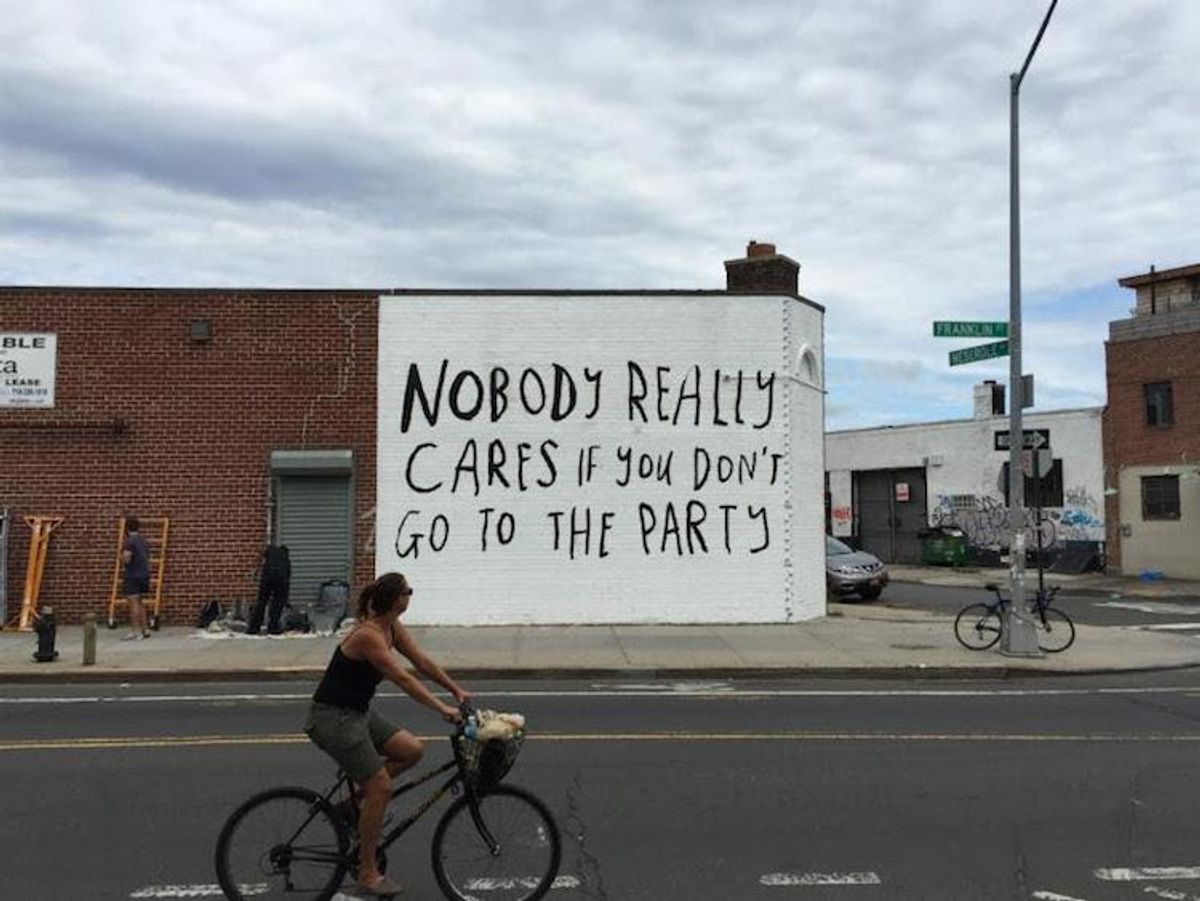 BLE
ta
LEASE
NOBODY REALLY
CARES IF YOU DON'T
GO TO THE PARTY
FRANKLIN ST
MESEROLE